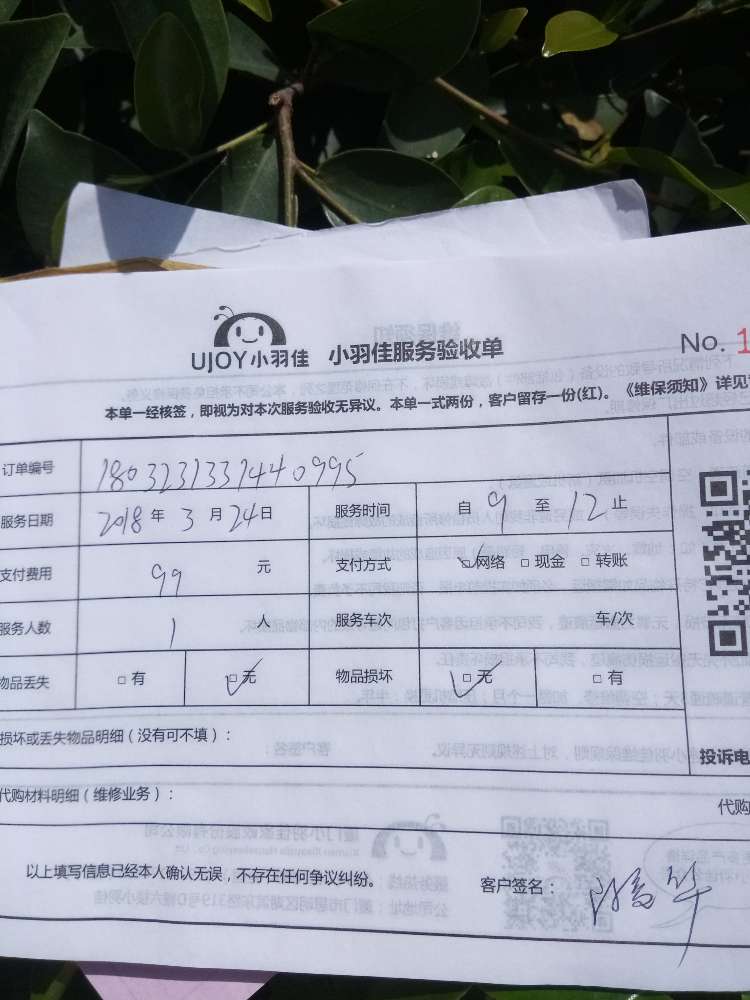 UJOY小羽佳 小羽佳服务验收单 No. 1
本单一经核签，即视为对本次服务验收无异议。本单一式两份，客户留存一份(红)。《维保须知》详见
订单编号 1803231331440995
服务日期 2018年 3月 24日 服务时间 自 9 至 12 止
支付费用 99 元 支付方式 ☑网络 □现金 □转账
服务人数 1 人 服务车次 车/次
物品丢失 □有 ☑无 物品损坏 ☑无 □有
损坏或丢失物品明细（没有可不填）：
投诉电
代购材料明细（维修业务）： 代购
以上填写信息已经本人确认无误，不存在任何争议纠纷。 客户签名：